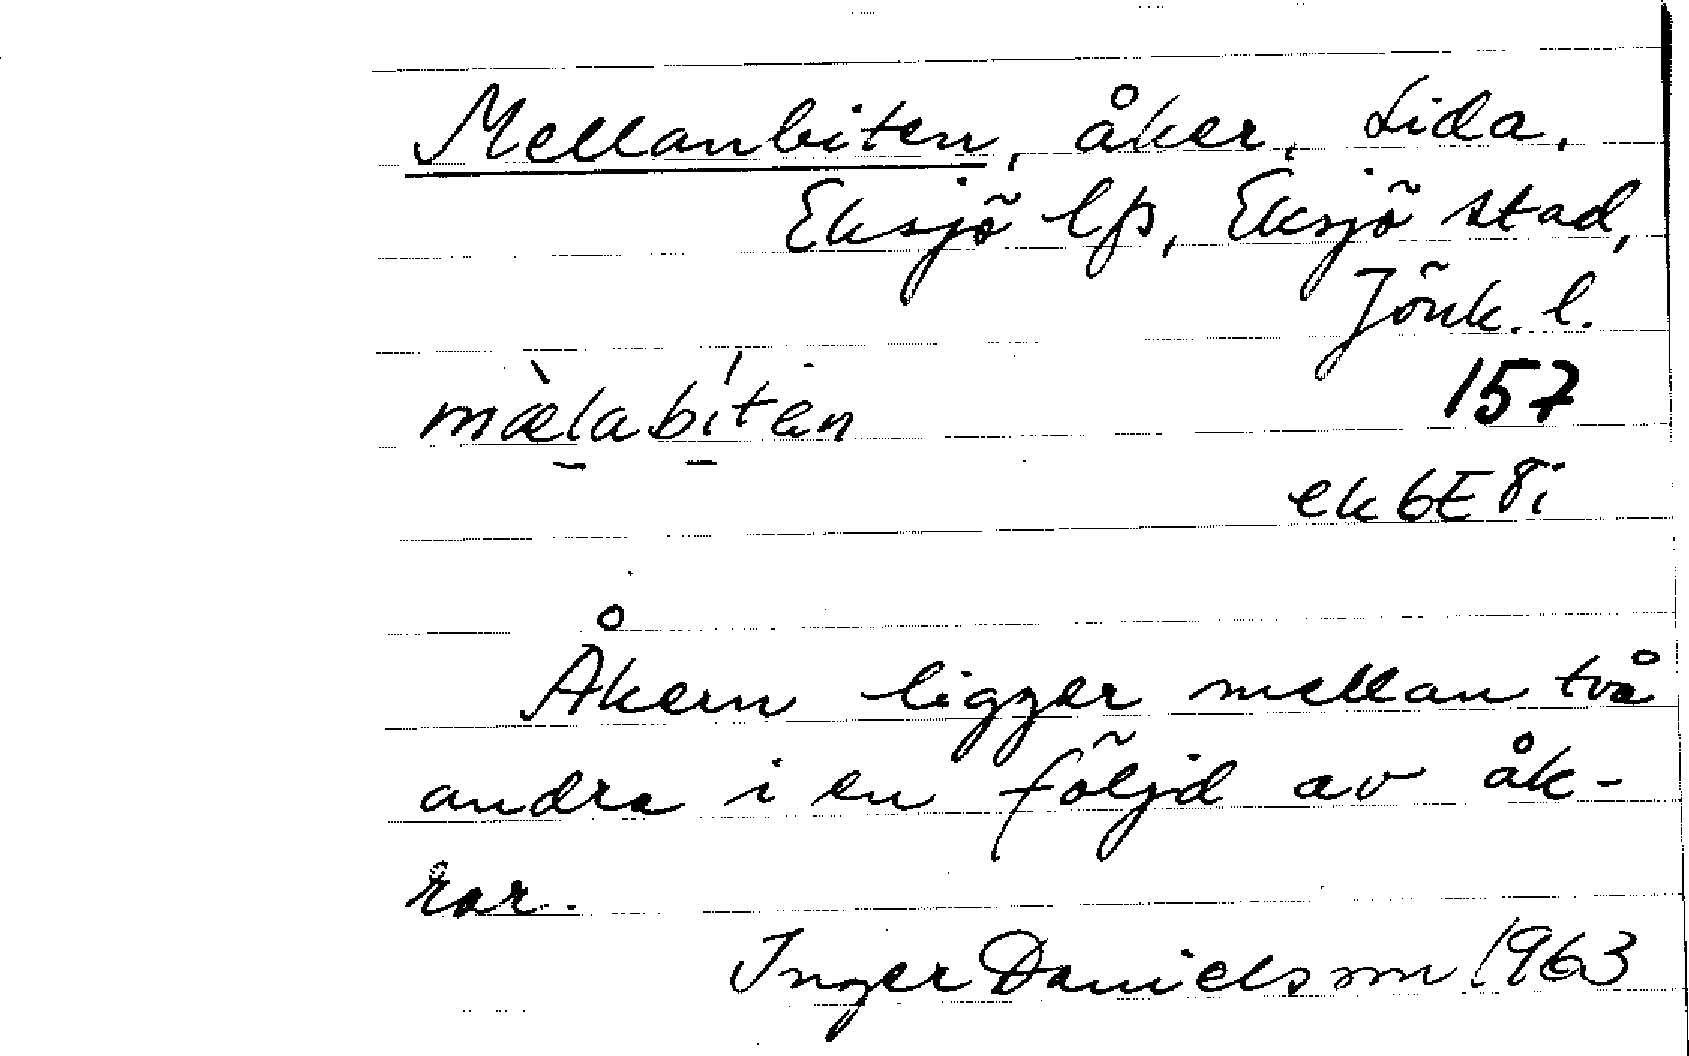 Mellanbiten, åker, Lida,
Eksjö lfs, Eksjö stad,
Jönk. l.
mæ̀labítən
157
ek 6E 8i
Åkern ligger mellan två
andra i en följd av åk-
rar.
Inger Danielsson 1963